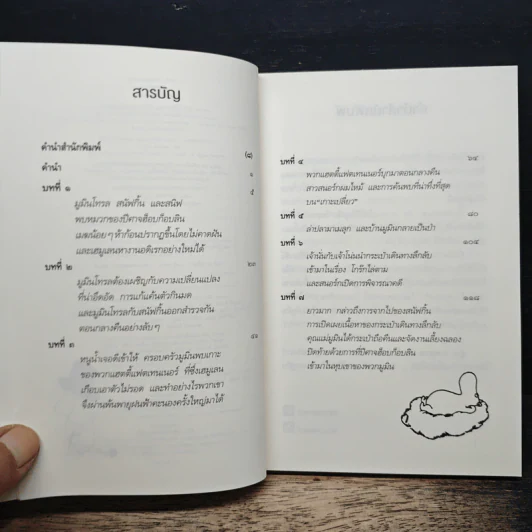 สารบัญ
คำนำสำนักพิมพ์ (๘)
คำนำ ๑
บทที่ ๑ ๕
มูมินโทรล สนัฟกิ้น และสนิฟ
พบหมวกของปีศาจฮ็อบก็อบลิน
เมฆน้อยๆ ห้าก้อนปรากฏขึ้นโดยไม่คาดฝัน
และเฮมูเลนหางานอดิเรกอย่างใหม่ได้
บทที่ ๒ ๒๓
มูมินโทรลต้องเผชิญกับความเปลี่ยนแปลง
ที่น่าอึดอัด การแก้แค้นตัวกินมด
และมูมินโทรลกับสนัฟกิ้นออกสำรวจกัน
ตอนกลางคืนอย่างลับๆ
บทที่ ๓
หนูน้ำเจอดีเข้าให้ ครอบครัวมูมินพบเกาะ
ของพวกแฮตตี้ฟัตเทนเนอร์ ที่ซึ่งเฮมูเลน
เกือบเอาตัวไม่รอด และทำอย่างไรพวกเขา
จึงผ่านพ้นพายุฝนฟ้าคะนองครั้งใหญ่มาได้
บทที่ ๔ ๖๔
พวกแฮตตี้ฟัตเทนเนอร์บุกมาตอนกลางคืน
สาวสนอร์กผมไหม้ และการค้นพบที่น่าทึ่งที่สุด
บน“เกาะเปลี่ยว”
บทที่ ๕ ๘๐
ล่าปลามาเมลุก และบ้านมูมินกลายเป็นป่า
บทที่ ๖ ๑๐๔
เจ้านั่นกับเจ้าโน่นนำกระเป๋าเดินทางลึกลับ
เข้ามาในเรื่อง โกร๊กไล่ตาม
และสนอร์กเปิดการพิจารณาคดี
บทที่ ๗ ๑๑๘
ยาวมาก กล่าวถึงการจากไปของสนัฟกิ้น
การเปิดเผยเนื้อหาของกระเป๋าเดินทางลึกลับ
คุณแม่มูมินได้กระเป๋าถือคืนและจัดงานเลี้ยงฉลอง
ปิดท้ายด้วยการที่ปีศาจฮ็อบก็อบลิน
เข้ามาในหุบเขาของพวกมูมิน